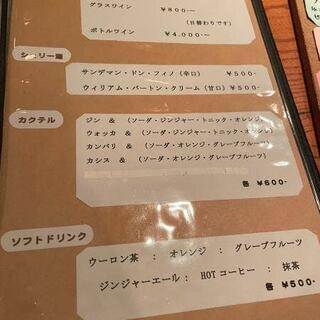 グラスワイン ¥800-
(日替わりです)
ボトルワイン ¥4.000-~
シェリー酒
サンデマン・ドン・フィノ(辛口) ¥500-
ウィリアム・バートン・クリーム(甘口) ¥500-
カクテル
ジン & (ソーダ・ジンジャー・トニック・オレンジ
ウォッカ & (ソーダ・ジンジャー・トニック・オレンジ
カンパリ & (ソーダ・オレンジ・グレープフルーツ)
カシス & (ソーダ・オレンジ・グレープフルーツ)
各 ¥600-
ソフトドリンク
ウーロン茶 : オレンジ : グレープフルーツ
ジンジャーエール: HOTコーヒー : 抹茶
各 ¥500-